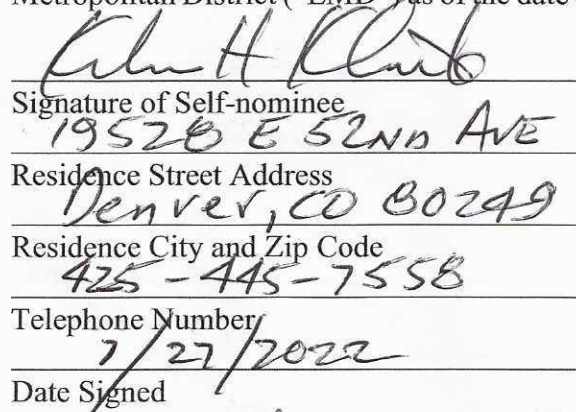 Metropolitan District ("EMD") as of the date
H
Signature of Self-nominee
19528 E 52ND AVE
Residence Street Address
Denver, CO 80249
Residence City and Zip Code
425-445-7558
Telephone Number
7/27/2022
Date Signed